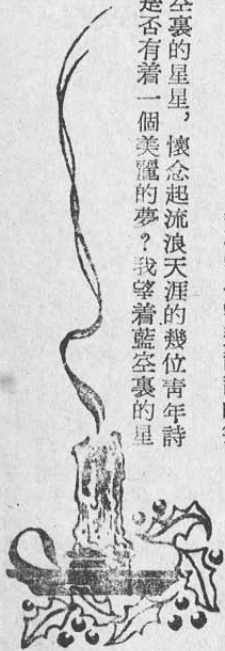 空裏的星星，懷念起流浪天涯的幾位靑年詩
是否有着一個美麗的夢？我望着藍空裏的星